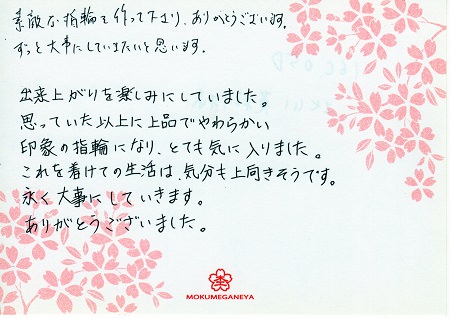 素敵な指輪を作って下さり、ありがとうございます。
ずっと大事にしていきたいと思います。
出来上がりを楽しみにしていました。
思っていた以上に上品でやわらかい
印象の指輪になり、とても気に入りました。
これを着けての生活は、気分も上向きそうです。
永く大事にしていきます。
ありがとうございました。
MOKUMEGANEYA